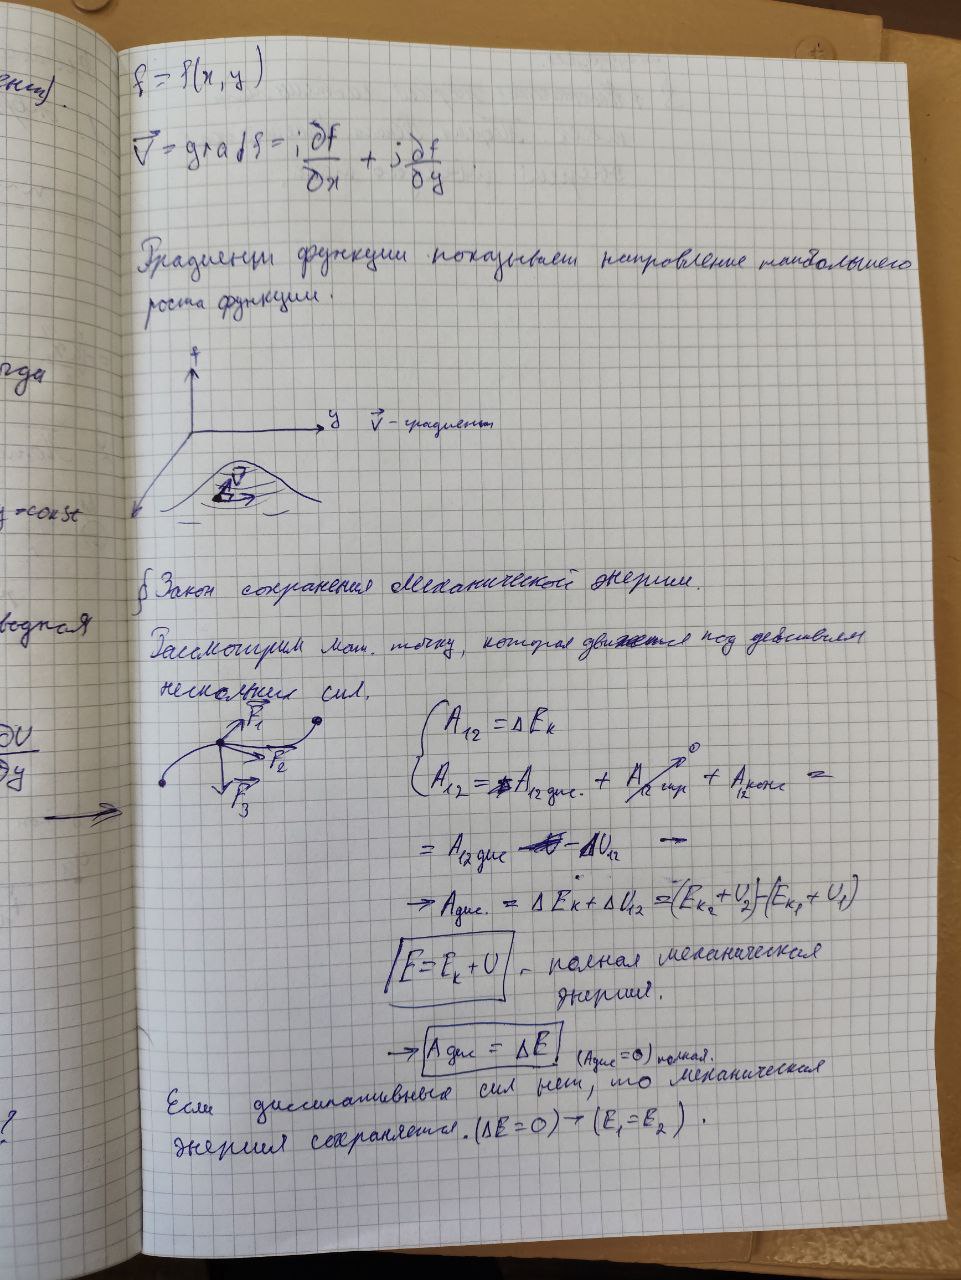 f = f(x, y)
V⃗ = grad f = i ∂f/∂x + j ∂f/∂y
Градиент функции показывает направление наибольшего
роста функции.
f
y V⃗ - градиент
V⃗
§ Закон сохранения механической энергии.
Рассмотрим мат. точку, которая движется под действием
нескольких сил.
F⃗₁
F⃗₂
F⃗₃
A₁₂ = ΔEк
A₁₂ = A₁₂ дис. + A₁₂ гир⁰ + A₁₂ конс =
= A₁₂ дис - ΔU₁₂ →
→ Aдис. = ΔEк + ΔU₁₂ = (Eк₂ + U₂) - (Eк₁ + U₁)
E = Eк + U - полная механическая
энергия.
→ Aдис = ΔE
(Aдис = 0) полная.
Если диссипативных сил нет, то механическая
энергия сохраняется. (ΔE = 0) → (E₁ = E₂).
ения).
огда
y = const
водная
∂U/∂y
?